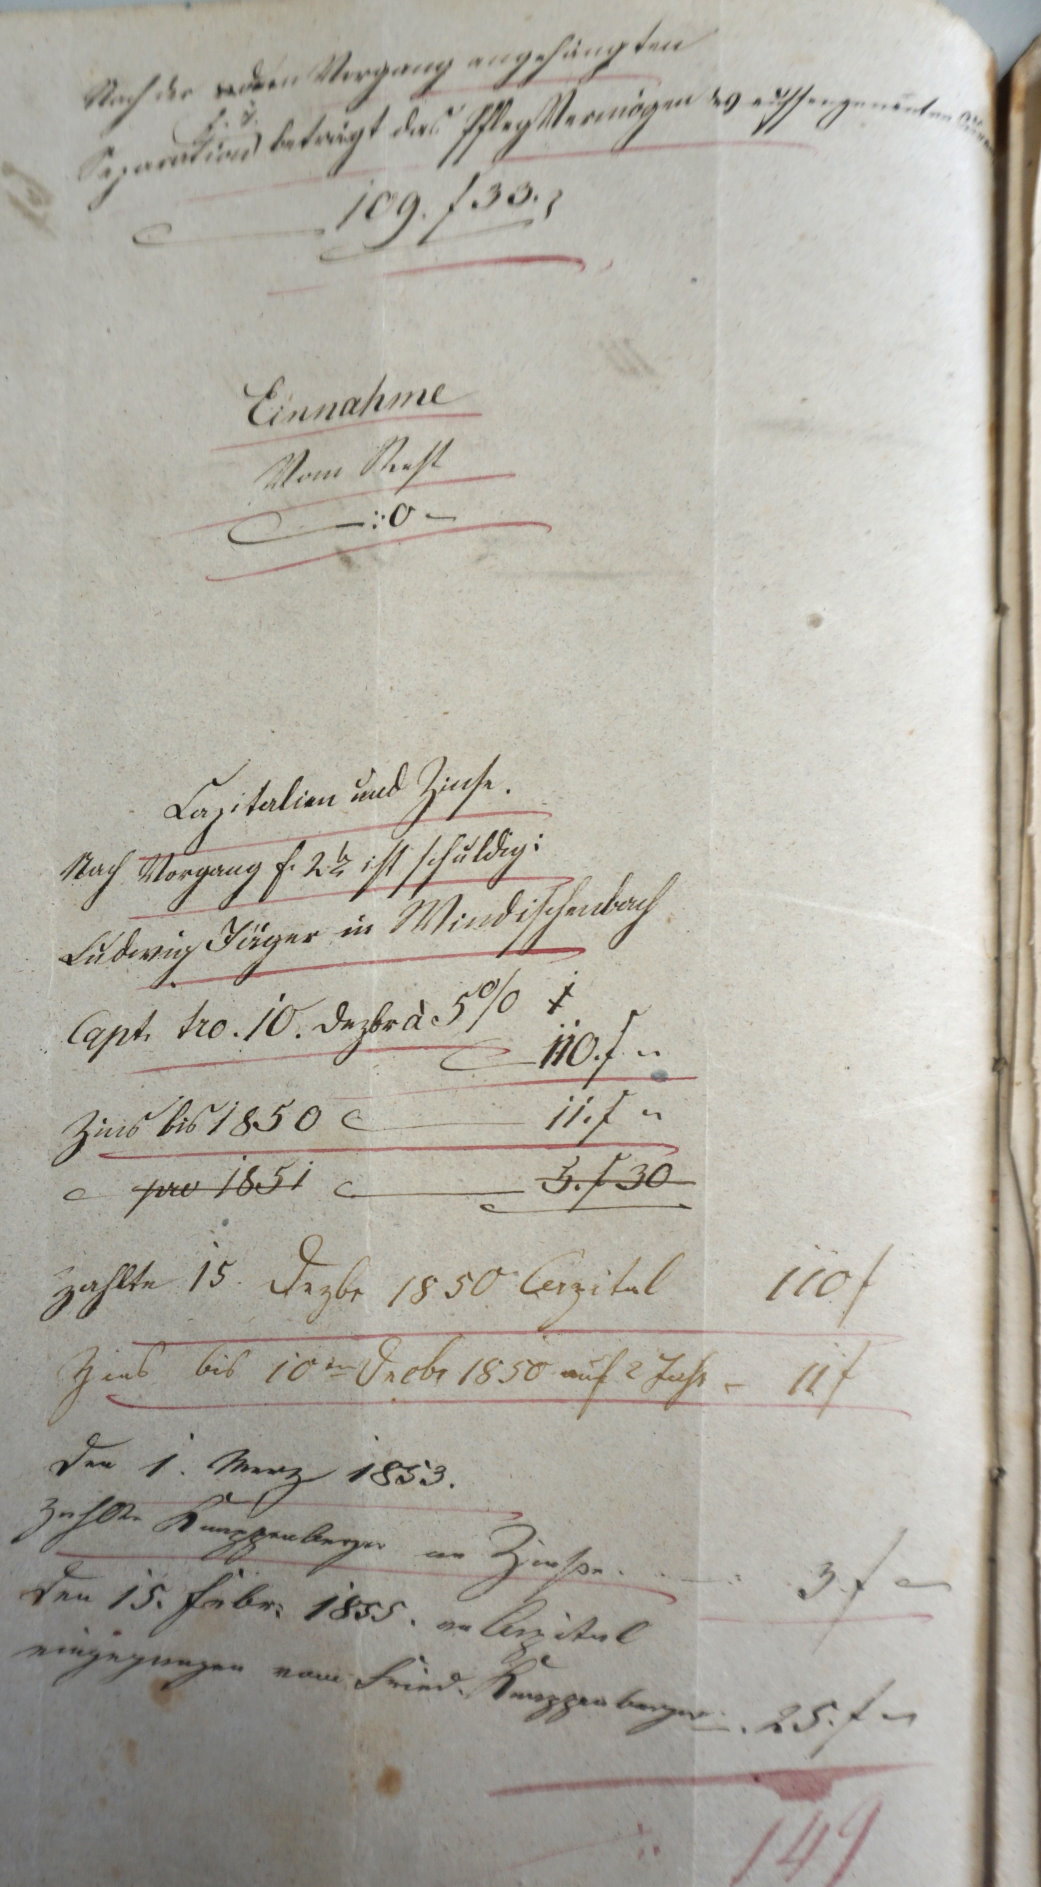 Nach der Vorgang angehängten
Separation beträgt das Pfleg Vermögen des aussengenannten
109. f 33.
Einnahme
Vom Rest
–:0–
Capitalien und Zinse.
Nach Vorgang f. 2 b ist schuldig:
Ludwig Jäger in Windischenbach
Capt. tro. 10. Dezbr à 5 %
110. f "
Zins bis 1850 11. f "
pro 1851 5. f 30
zahlte 15. Dezbr 1850 Capital 110 f
Zins bis 10ten Decbr 1850 auf 2 Jahr – 11 f
Den 1. Merz 1853.
zahlte Knappenberger an Zinsen. 3 f
Den 15. Febr: 1855. an Capital
eingegangen vom Fried. Knappenberger 25. f "
149